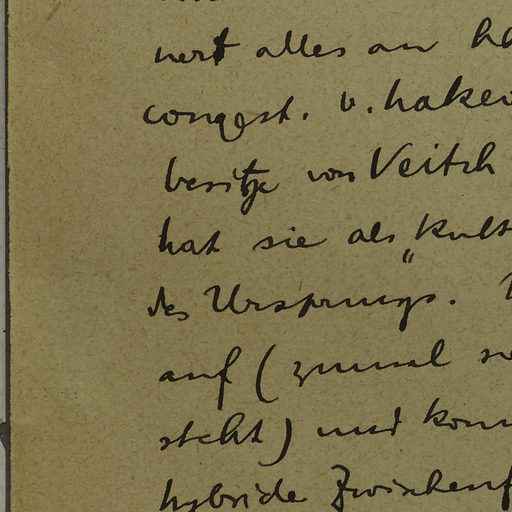 nert alles an
congest. v. hakeo
besitze von Veitch
hat sie als "Kult
des Ursprungs.
auf (zumal
steht) und kom
hybride Zwischenf